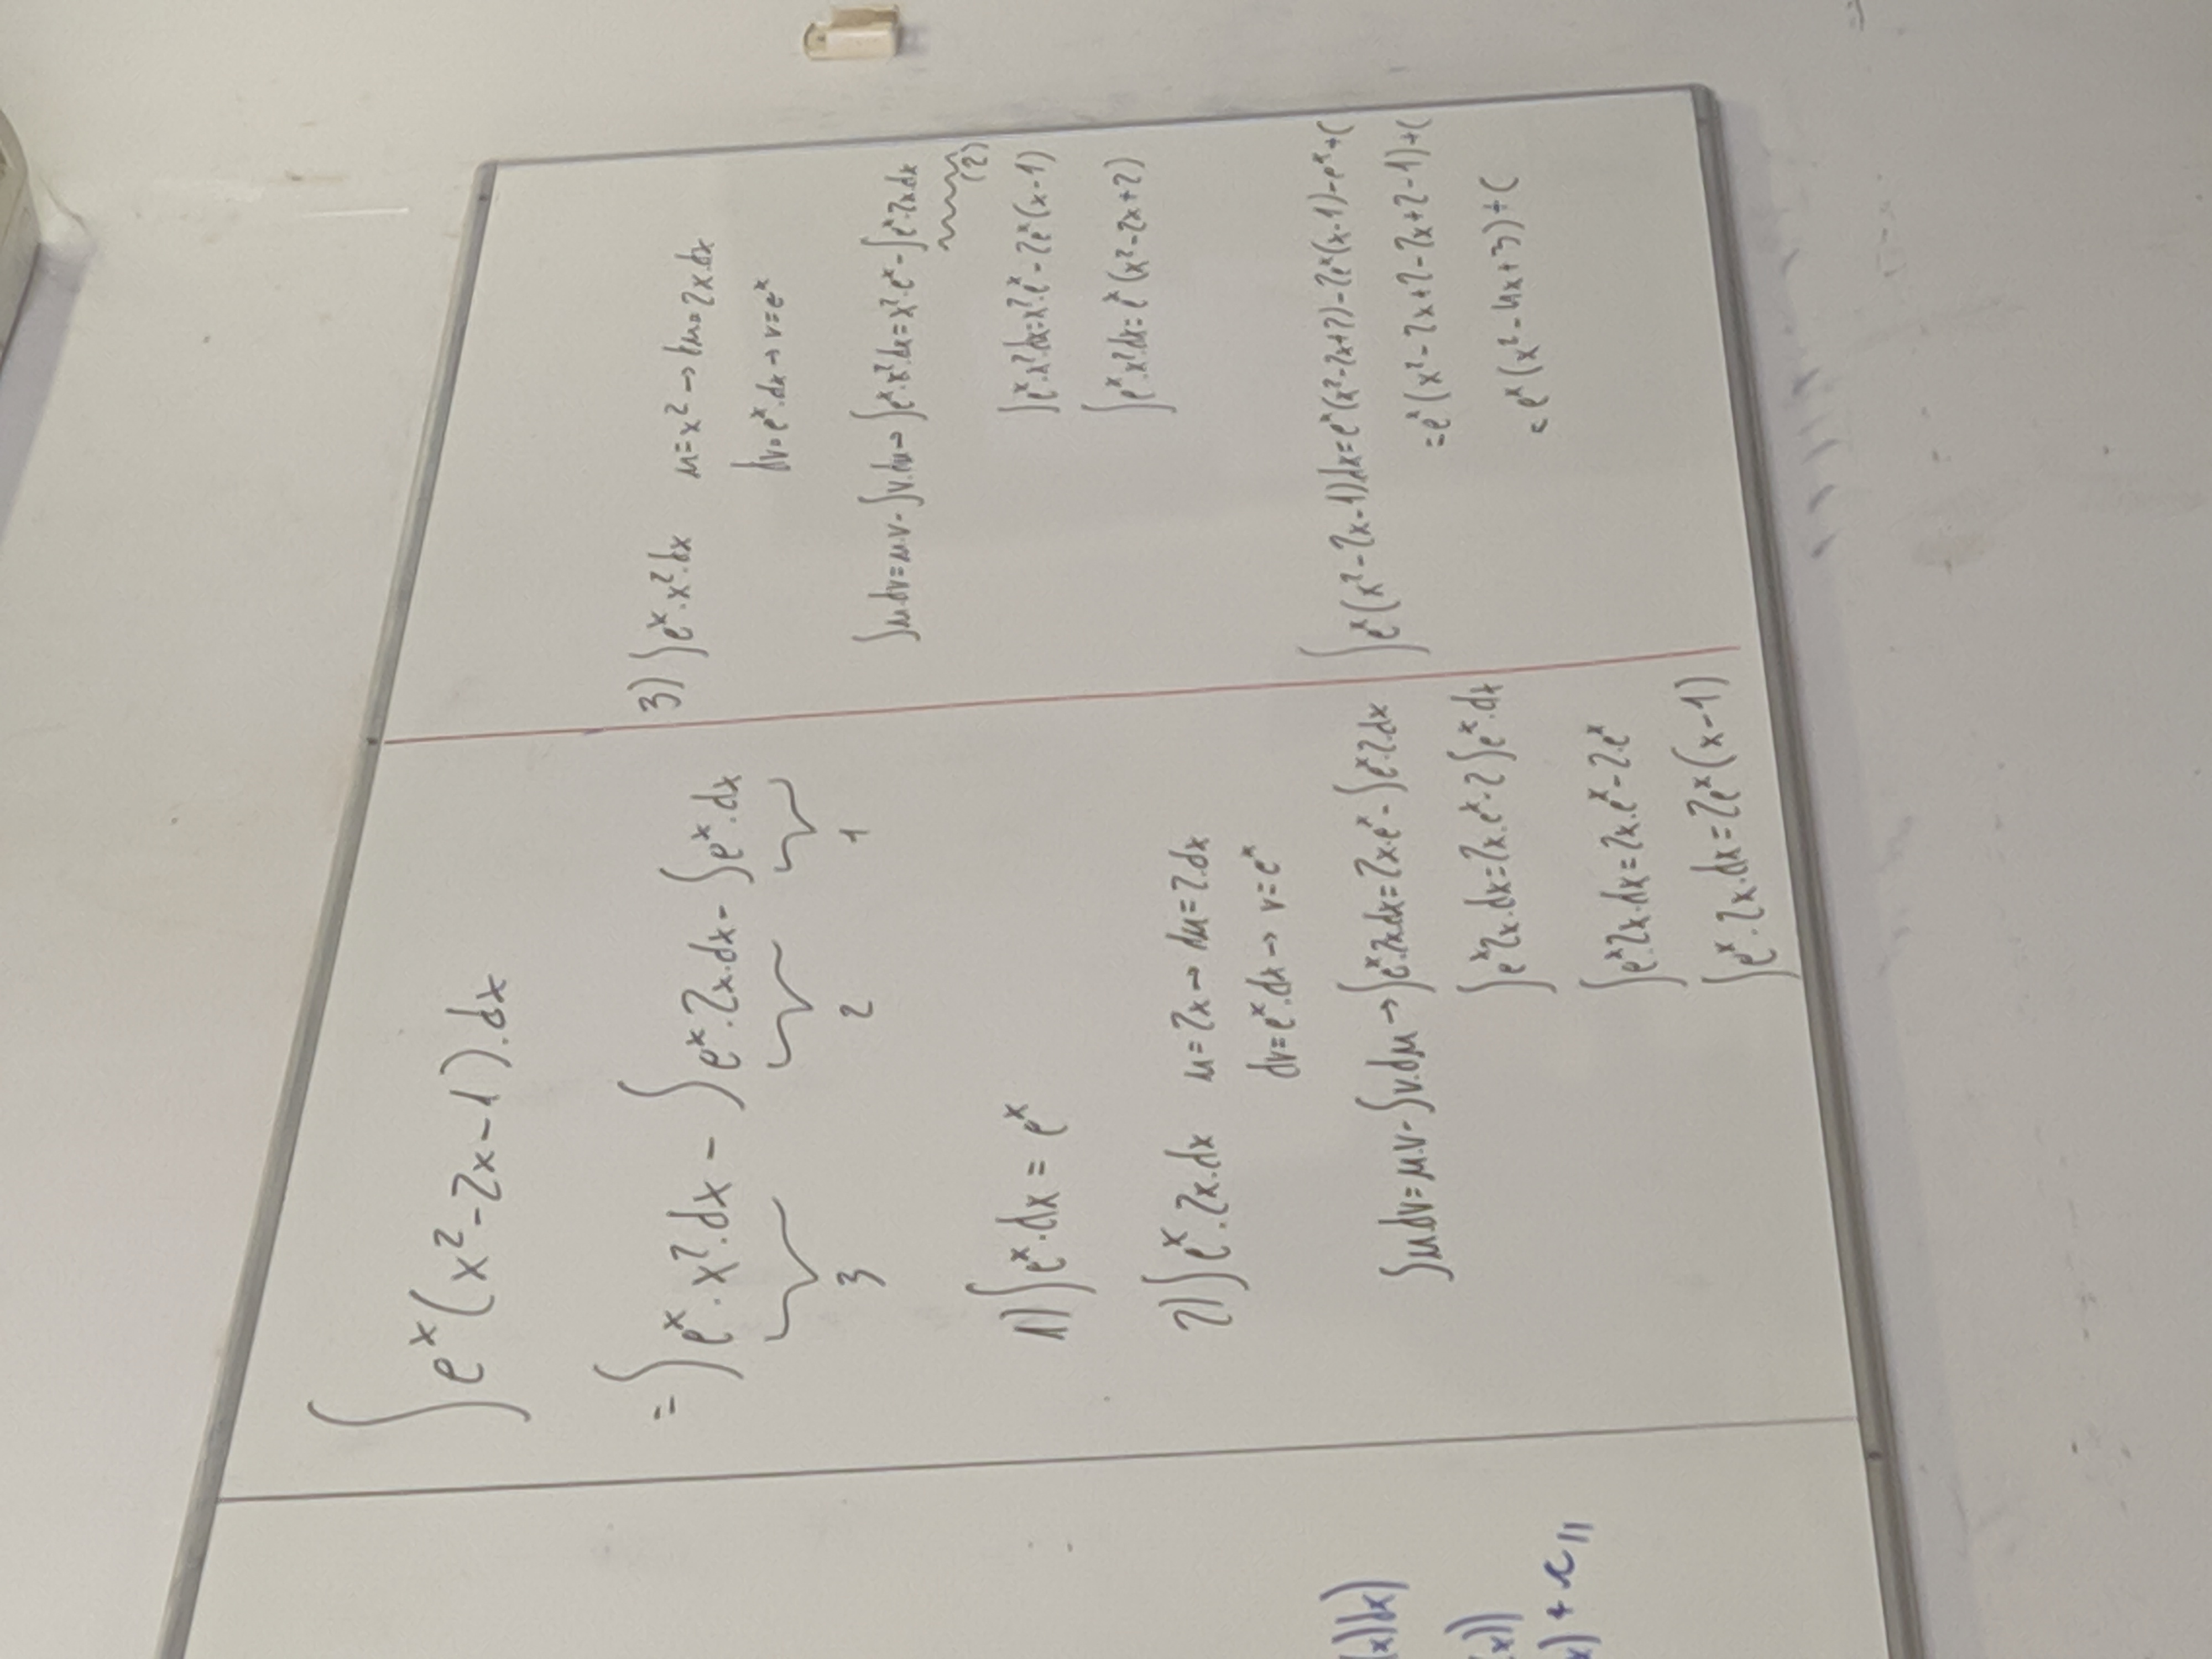 ∫ eˣ(x²-2x-1).dx
= ∫ eˣ.x².dx - ∫ eˣ.2x.dx - ∫ eˣ.dx
3 2 1
1) ∫ eˣ.dx = eˣ
2) ∫ eˣ.2x.dx u=2x → du=2.dx
dv=eˣ.dx → v=eˣ
∫u.dv=u.v-∫v.du → ∫eˣ.2x.dx=2x.eˣ-∫eˣ.2.dx
∫eˣ2x.dx=2x.eˣ-2∫eˣ.dx
∫eˣ.2x.dx=2x.eˣ-2.eˣ
∫eˣ.2x.dx=2eˣ(x-1)
3) ∫eˣ.x².dx u=x² → du=2x.dx
dv=eˣ.dx → v=eˣ
∫u.dv=u.v-∫v.du → ∫eˣ.x².dx=x².eˣ-∫eˣ.2x.dx
(2)
∫eˣ.x².dx=x².eˣ-2eˣ(x-1)
∫eˣ.x².dx=eˣ(x²-2x+2)
∫eˣ(x²-2x-1)dx=eˣ(x²-2x+2)-2eˣ(x-1)-eˣ+C
=eˣ(x²-2x+2-2x+2-1)+C
=eˣ(x²-4x+3)+C
x)dx)
x))
x)+c//